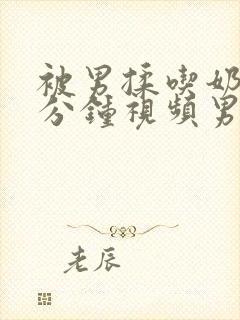 被男揉喫奶
分鐘視頻男
老辰